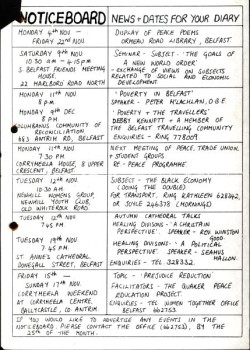 NOTICEBOARD
NEWS + DATES FOR YOUR DIARY
MONDAY 4TH NOV -
FRIDAY 22ND NOV
DISPLAY OF PEACE POEMS
ORMEAU ROAD LIBRARY, BELFAST
SATURDAY 9TH NOV
10.30 AM - 4.15PM
S. BELFAST FRIENDS MEETING
HOUSE,
22 MARLBORO' ROAD NORTH
SEMINAR - SUBJECT - 'THE GOALS OF
A NEW WORLD ORDER'
- EXCHANGE OF VIEWS ON SUBJECTS
RELATED TO SOCIAL AND ECONOMIC
DEVELOPMENT.
MONDAY 11TH NOV
8 PM
'POVERTY IN BELFAST'
SPEAKER - PETER McLACHLAN, O.B.E
MONDAY 9TH DEC.
8 PM
COLUMBANUS COMMUNITY OF
RECONCILIATION
683 ANTRIM RD, BELFAST
'POVERTY & THE TRAVELLERS'
DEBBY KENNETT + A MEMBER OF
THE BELFAST TRAVELLING COMMUNITY
ENQUIRIES - RING 778009
MONDAY 11TH NOV
7.30 PM
CORRYMEELA HOUSE, 8 UPPER
CRESCENT, BELFAST
NEXT MEETING OF PEACE, TRADE UNION,
+ STUDENT GROUPS
RE - PEACE PROGRAMME
TUESDAY 12TH NOV.
10.30 AM
NEWHILL WOMENS GROUP,
NEWHILL YOUTH CLUB,
OLD WHITEROCK ROAD
SUBJECT - THE BLACK ECONOMY
(DOING THE DOUBLE)
FOR TRANSPORT, RING KATHLEEN 628342
OR JOYCE 246378 (MORNINGS)
TUESDAY 12TH NOV
7.45 PM
AUTUMN CATHEDRAL TALKS
HEALING DIVISIONS - 'A CHRISTIAN
PERSPECTIVE'. SPEAKER - REV WINSTON
GOOD
TUESDAY 19TH NOV
7.45 PM
ST. ANNE'S CATHEDRAL
DONEGALL STREET, BELFAST
HEALING DIVISIONS - 'A POLITICAL
PERSPECTIVE'. SPEAKER - SEAMUS
MALLON.
ENQUIRIES - TEL. 328332
FRIDAY 15TH -
SUNDAY 17TH NOV.
CORRYMEELA WEEKEND
AT CORRYMEELA CENTRE,
BALLYCASTLE, CO ANTRIM
TOPIC - PREJUDICE REDUCTION
FACILITATORS - THE QUAKER PEACE
EDUCATION PROJECT.
ENQUIRIES - TEL WOMEN TOGETHER OFFICE
BELFAST
IF YOU WOULD LIKE TO ADVERTISE ANY EVENTS IN THE
NOTICEBOARD, PLEASE CONTACT THE OFFICE BY THE
25TH OF THE MONTH.